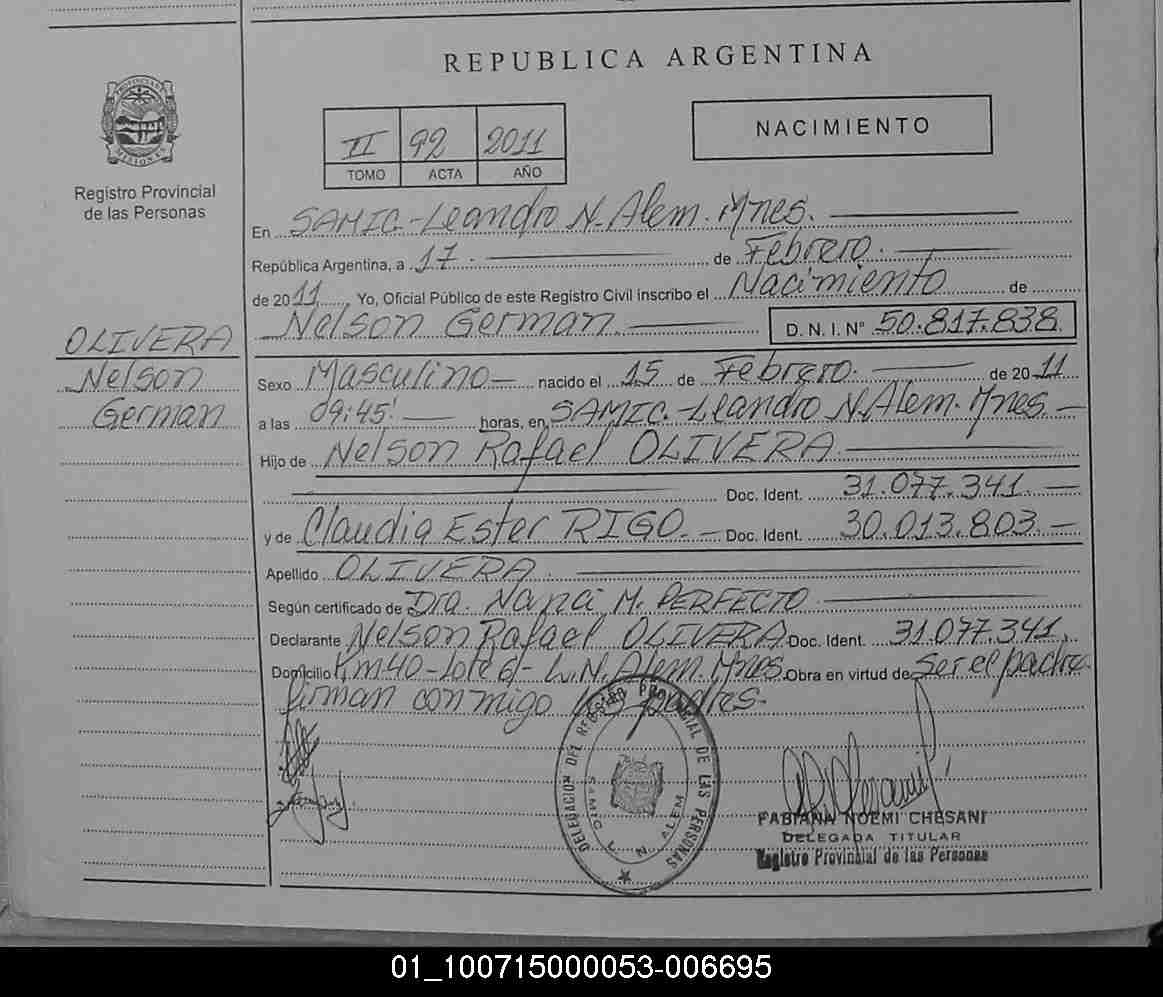 REPUBLICA ARGENTINA
PROVINCIA DE MISIONES
Registro Provincial
de las Personas
II 92 2011
TOMO ACTA AÑO
NACIMIENTO
En SAMIC.-Leandro N. Alem. Mnes.
República Argentina, a 17. de Febrero.
de 2011, Yo, Oficial Público de este Registro Civil inscribo el Nacimiento de
Nelson German D.N.I. Nº 50.817.838.
OLIVERA
Nelson
German
Sexo Masculino nacido el 15 de Febrero. de 2011
a las 09:45' horas, en SAMIC.-Leandro N. Alem. Mnes.
Hijo de Nelson Rafael OLIVERA
Doc. Ident. 31.077.341.
y de Claudia Ester RIGO. Doc. Ident. 30.013.803.
Apellido OLIVERA.
Según certificado de Dra. Nanci M. PERFECTO
Declarante Nelson Rafael OLIVERA Doc. Ident. 31.077.341.
Domicilio Km40-lote d- L.N. Alem. Mnes. Obra en virtud de Ser el padre.
firman conmigo los padres.
DELEGACION DEL REGISTRO PROVINCIAL DE LAS PERSONAS
SAMIC L. N. ALEM
FABIANA NOEMI CHESANI
DELEGADA TITULAR
Registro Provincial de las Personas
01_100715000053-006695